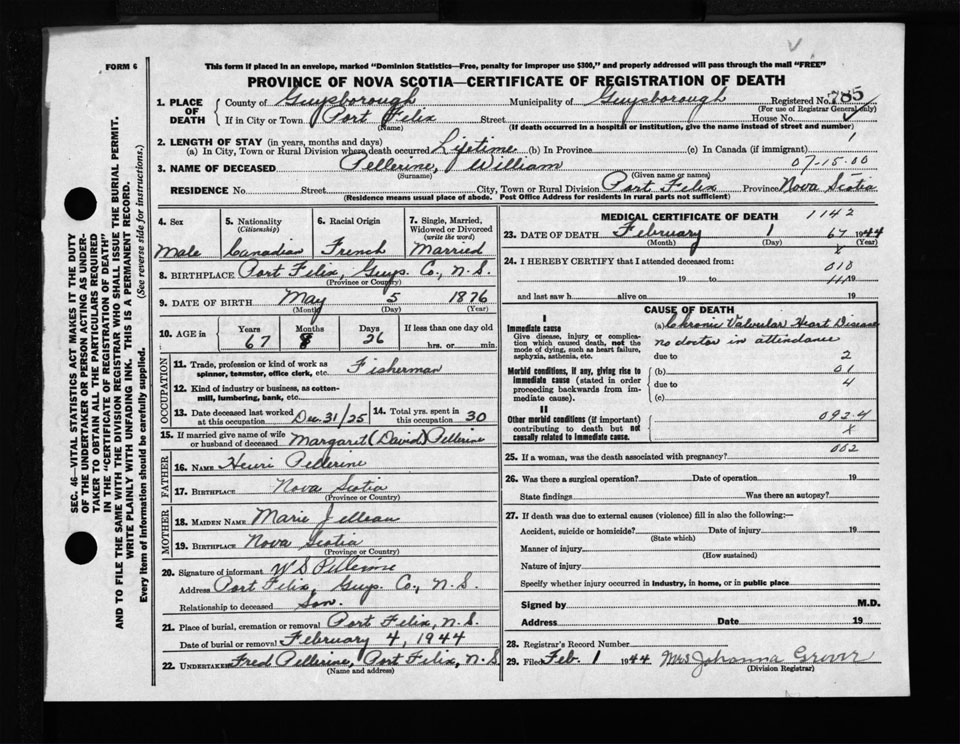 FORM 6
This form if placed in an envelope, marked "Dominion Statistics—Free, penalty for improper use $300," and properly addressed will pass through the mail "FREE"
PROVINCE OF NOVA SCOTIA—CERTIFICATE OF REGISTRATION OF DEATH
1. PLACE OF DEATH County of Guysborough Municipality of Guysborough Registered No. 785
(For use of Registrar General only)
If in City or Town Port Felix Street House No.
(Name) (If death occurred in a hospital or institution, give the name instead of street and number)
2. LENGTH OF STAY (in years, months and days)
(a) In City, Town or Rural Division where death occurred Lifetime (b) In Province (c) In Canada (if immigrant) 1
3. NAME OF DECEASED Pellerine, William 07-15-00
(Surname) (Given name or names)
RESIDENCE No Street City, Town or Rural Division Port Felix Province Nova Scotia
(Residence means usual place of abode. Post Office Address for residents in rural parts not sufficient)
4. Sex 5. Nationality 6. Racial Origin 7. Single, Married, Widowed or Divorced
(Citizenship) (write the word)
Male Canadian French Married
8. BIRTHPLACE Port Felix, Guys. Co., N.S.
(Province or Country)
9. DATE OF BIRTH May 5 1876
(Month) (Day) (Year)
10. AGE in Years Months Days If less than one day old
67 8 26 hrs. or min.
OCCUPATION
11. Trade, profession or kind of work as spinner, teamster, office clerk, etc. Fisherman
12. Kind of industry or business, as cotton-mill, lumbering, bank, etc.
13. Date deceased last worked at this occupation Dec. 31/25 14. Total yrs. spent in this occupation 30
15. If married give name of wife or husband of deceased Margaret (David) Pellerine
FATHER
16. NAME Henri Pellerine
17. BIRTHPLACE Nova Scotia
(Province or Country)
MOTHER
18. MAIDEN NAME Marie Jellean
19. BIRTHPLACE Nova Scotia
(Province or Country)
20. Signature of informant W S Pellerine
Address Port Felix, Guys. Co., N.S.
Relationship to deceased Son.
21. Place of burial, cremation or removal Port Felix, N.S.
Date of burial or removal February 4, 1944
22. UNDERTAKER Fred Pellerine, Port Felix, N.S.
(Name and address)
MEDICAL CERTIFICATE OF DEATH 1142
23. DATE OF DEATH February 1 67 1944
(Month) (Day) (Year)
X
24. I HEREBY CERTIFY that I attended deceased from:
010
19 to 19
and last saw h alive on 19
CAUSE OF DEATH
I
Immediate cause (a) Chronic Valvular Heart Disease
Give disease, injury or complication which caused death, not the mode of dying, such as heart failure, asphyxia, asthenia, etc. no doctor in attendance
due to 2
Morbid conditions, if any, giving rise to immediate cause (stated in order proceeding backwards from immediate cause). (b) 01
due to 4
(c)
II
Other morbid conditions (if important) contributing to death but not causally related to immediate cause. 092.4
X
25. If a woman, was the death associated with pregnancy? 002
26. Was there a surgical operation? Date of operation 19
State findings Was there an autopsy?
27. If death was due to external causes (violence) fill in also the following:—
Accident, suicide or homicide? Date of injury 19
(State which)
Manner of injury
(How sustained)
Nature of injury
Specify whether injury occurred in industry, in home, or in public place
Signed by M.D.
Address Date 19
28. Registrar's Record Number
29. Filed Feb. 1 1944 Mrs Johanna Grover
(Division Registrar)
SEC. 46—VITAL STATISTICS ACT MAKES IT THE DUTY
OF THE UNDERTAKER OR PERSON ACTING AS UNDER-
TAKER TO OBTAIN ALL THE PARTICULARS REQUIRED
IN THE "CERTIFICATE OF REGISTRATION OF DEATH"
AND TO FILE THE SAME WITH THE DIVISION REGISTRAR WHO SHALL ISSUE THE BURIAL PERMIT.
WRITE PLAINLY WITH UNFADING INK. THIS IS A PERMANENT RECORD.
Every item of information should be carefully supplied. (See reverse side for instructions.)